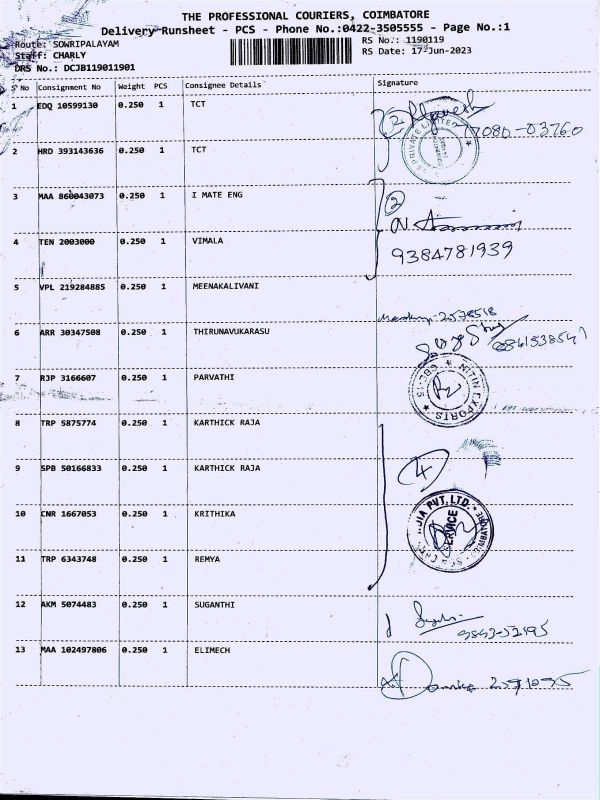 THE PROFESSIONAL COURIERS, COIMBATORE
Delivery Runsheet - PCS - Phone No.:0422-3505555 - Page No.:1
Route: SOWRIPALAYAM RS No.: 1190119
Staff: CHARLY RS Date: 17-Jun-2023
DRS No.: DCJB119011901
S No Consignment No Weight PCS Consignee Details Signature
1 EDQ 10599130 0.250 1 TCT
2
PRIVATE LIMITED
2 HRD 393143636 0.250 1 TCT
3 MAA 860043073 0.250 1 I MATE ENG
2
4 TEN 2003000 0.250 1 VIMALA
9384781939
5 VPL 219284885 0.250 1 MEENAKALIVANI
6 ARR 30347508 0.250 1 THIRUNAVUKARASU
7 RJP 3166607 0.250 1 PARVATHI
NITIN EXPORTS
8 TRP 5875774 0.250 1 KARTHICK RAJA
9 SPB 50166833 0.250 1 KARTHICK RAJA
4
10 CNR 1667053 0.250 1 KRITHIKA
PVT. LTD.
11 TRP 6343748 0.250 1 REMYA
12 AKM 5074483 0.250 1 SUGANTHI
13 MAA 102497806 0.250 1 ELIMECH